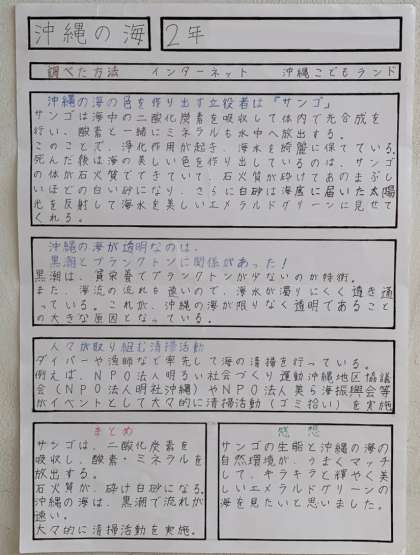 沖縄の海
2年
調べた方法　インターネット　沖縄こどもランド
沖縄の海の色を作り出す立役者は『サンゴ』
サンゴは海中の二酸化炭素を吸収して体内で光合成を
行い、酸素と一緒にミネラルも水中へ放出する。
このことで、浄化作用が起き、海水を綺麗に保てている。
死んだ後は海の美しい色を作り出しているのは、サンゴ
の体が石火質でできていて、石火質が砕けてあのまぶし
いほどの白い砂になり、さらに白砂は海底に届いた太陽
光を反射して海水を美しいエメラルドグリーンに見せて
くれる。
沖縄の海が透明なのは、
黒潮とプランクトンに関係があった！
黒潮は、貧栄養でプランクトンが少ないのが特徴。
また、海流の流れも速いので、海水が濁りにくく透き通
っている。これが、沖縄の海が限りなく透明であること
の大きな原因となっている。
人々が取り組む清掃活動
ダイバーや漁師など率先して海の清掃を行っている。
例えば、NPO法人明るい社会づくり運動沖縄地区協議
会（NPO法人明社沖縄）やNPO美ら海振興会等
がイベントとして大々的に清掃活動（ゴミ拾い）を実施
まとめ
サンゴは、二酸化炭素を
吸収し、酸素・ミネラルを
放出する。
石火質が、砕け白砂になる。
沖縄の海は、黒潮で流れが
速い。
大々的に清掃活動を実施。
感想
サンゴの生態と沖縄の海の
自然環境が、うまくマッチ
して、キラキラと輝やく美し
いエメラルドグリーンの
海を見たいと思いました。